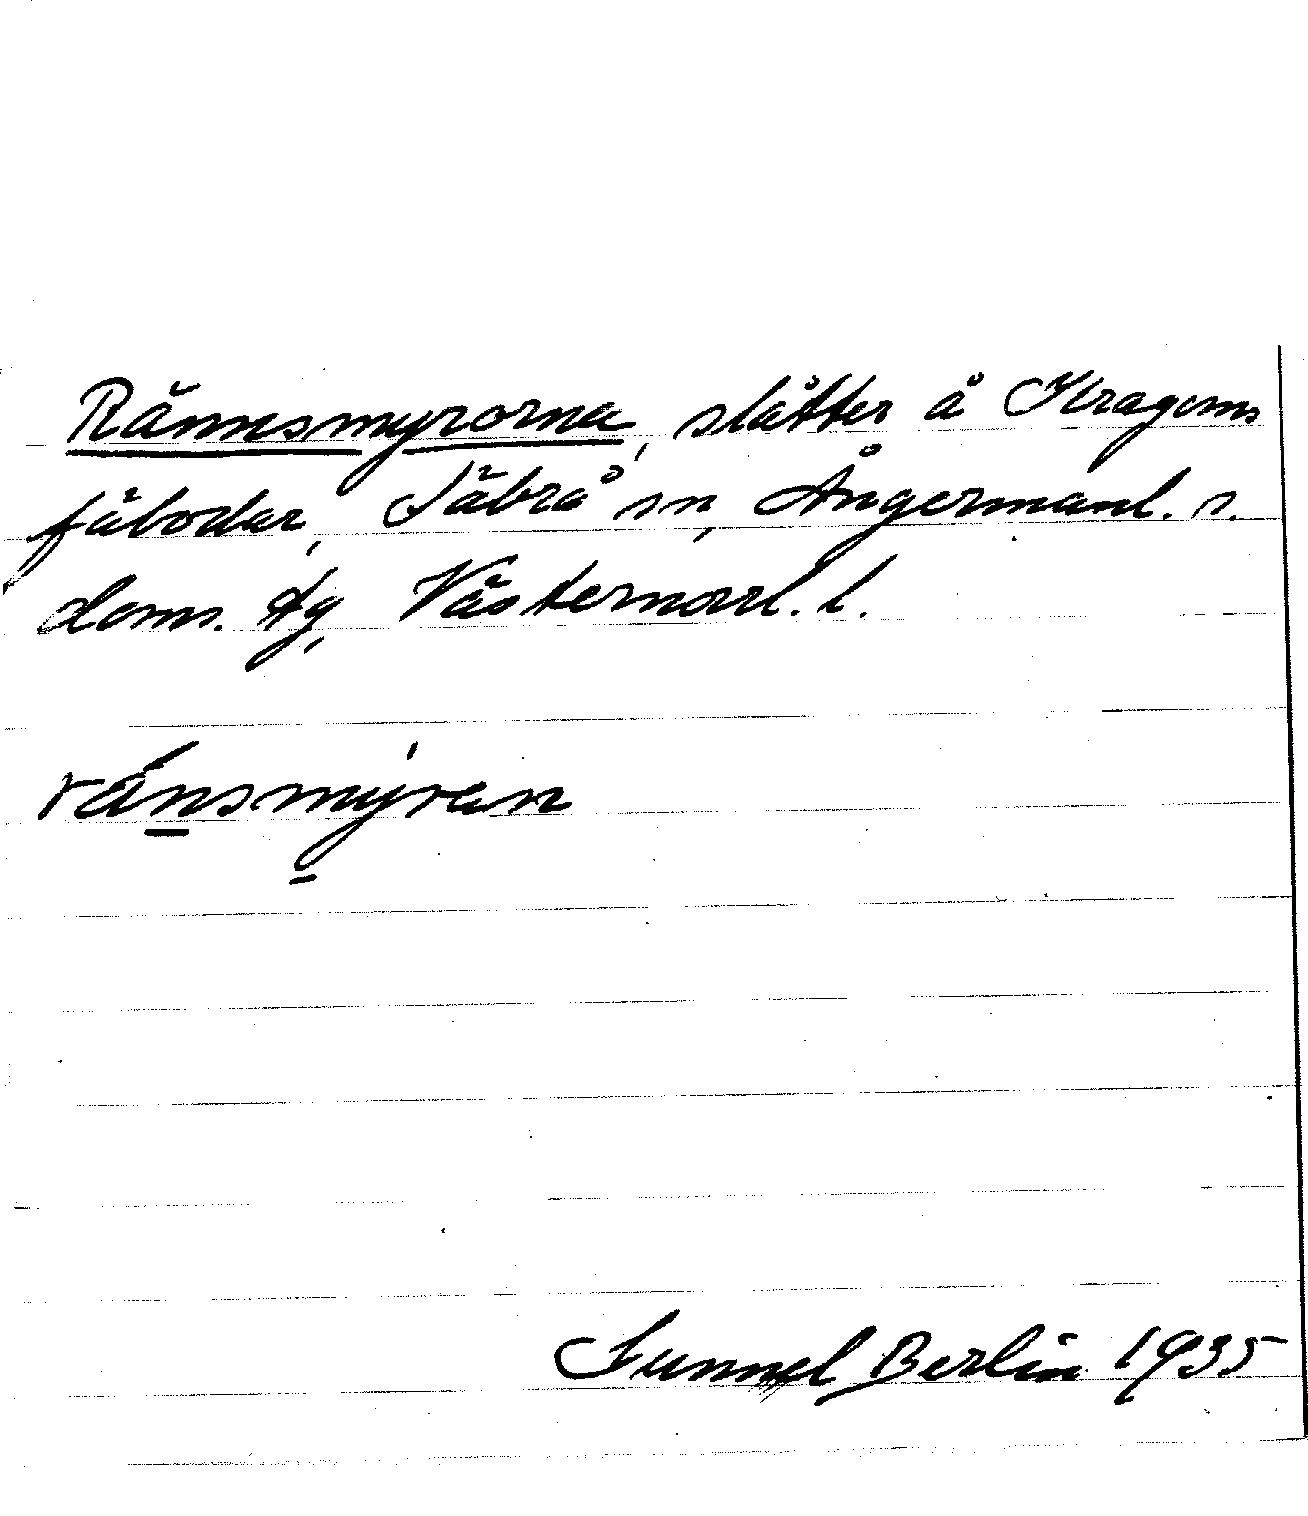 Rännsmyrorna, slåtter å Kragoms
fäbodar, Säbrå sn, Ångermanl. s.
doms. tg, Västernorrl. l.
ränsmýran
Sunnel Berlin 1935